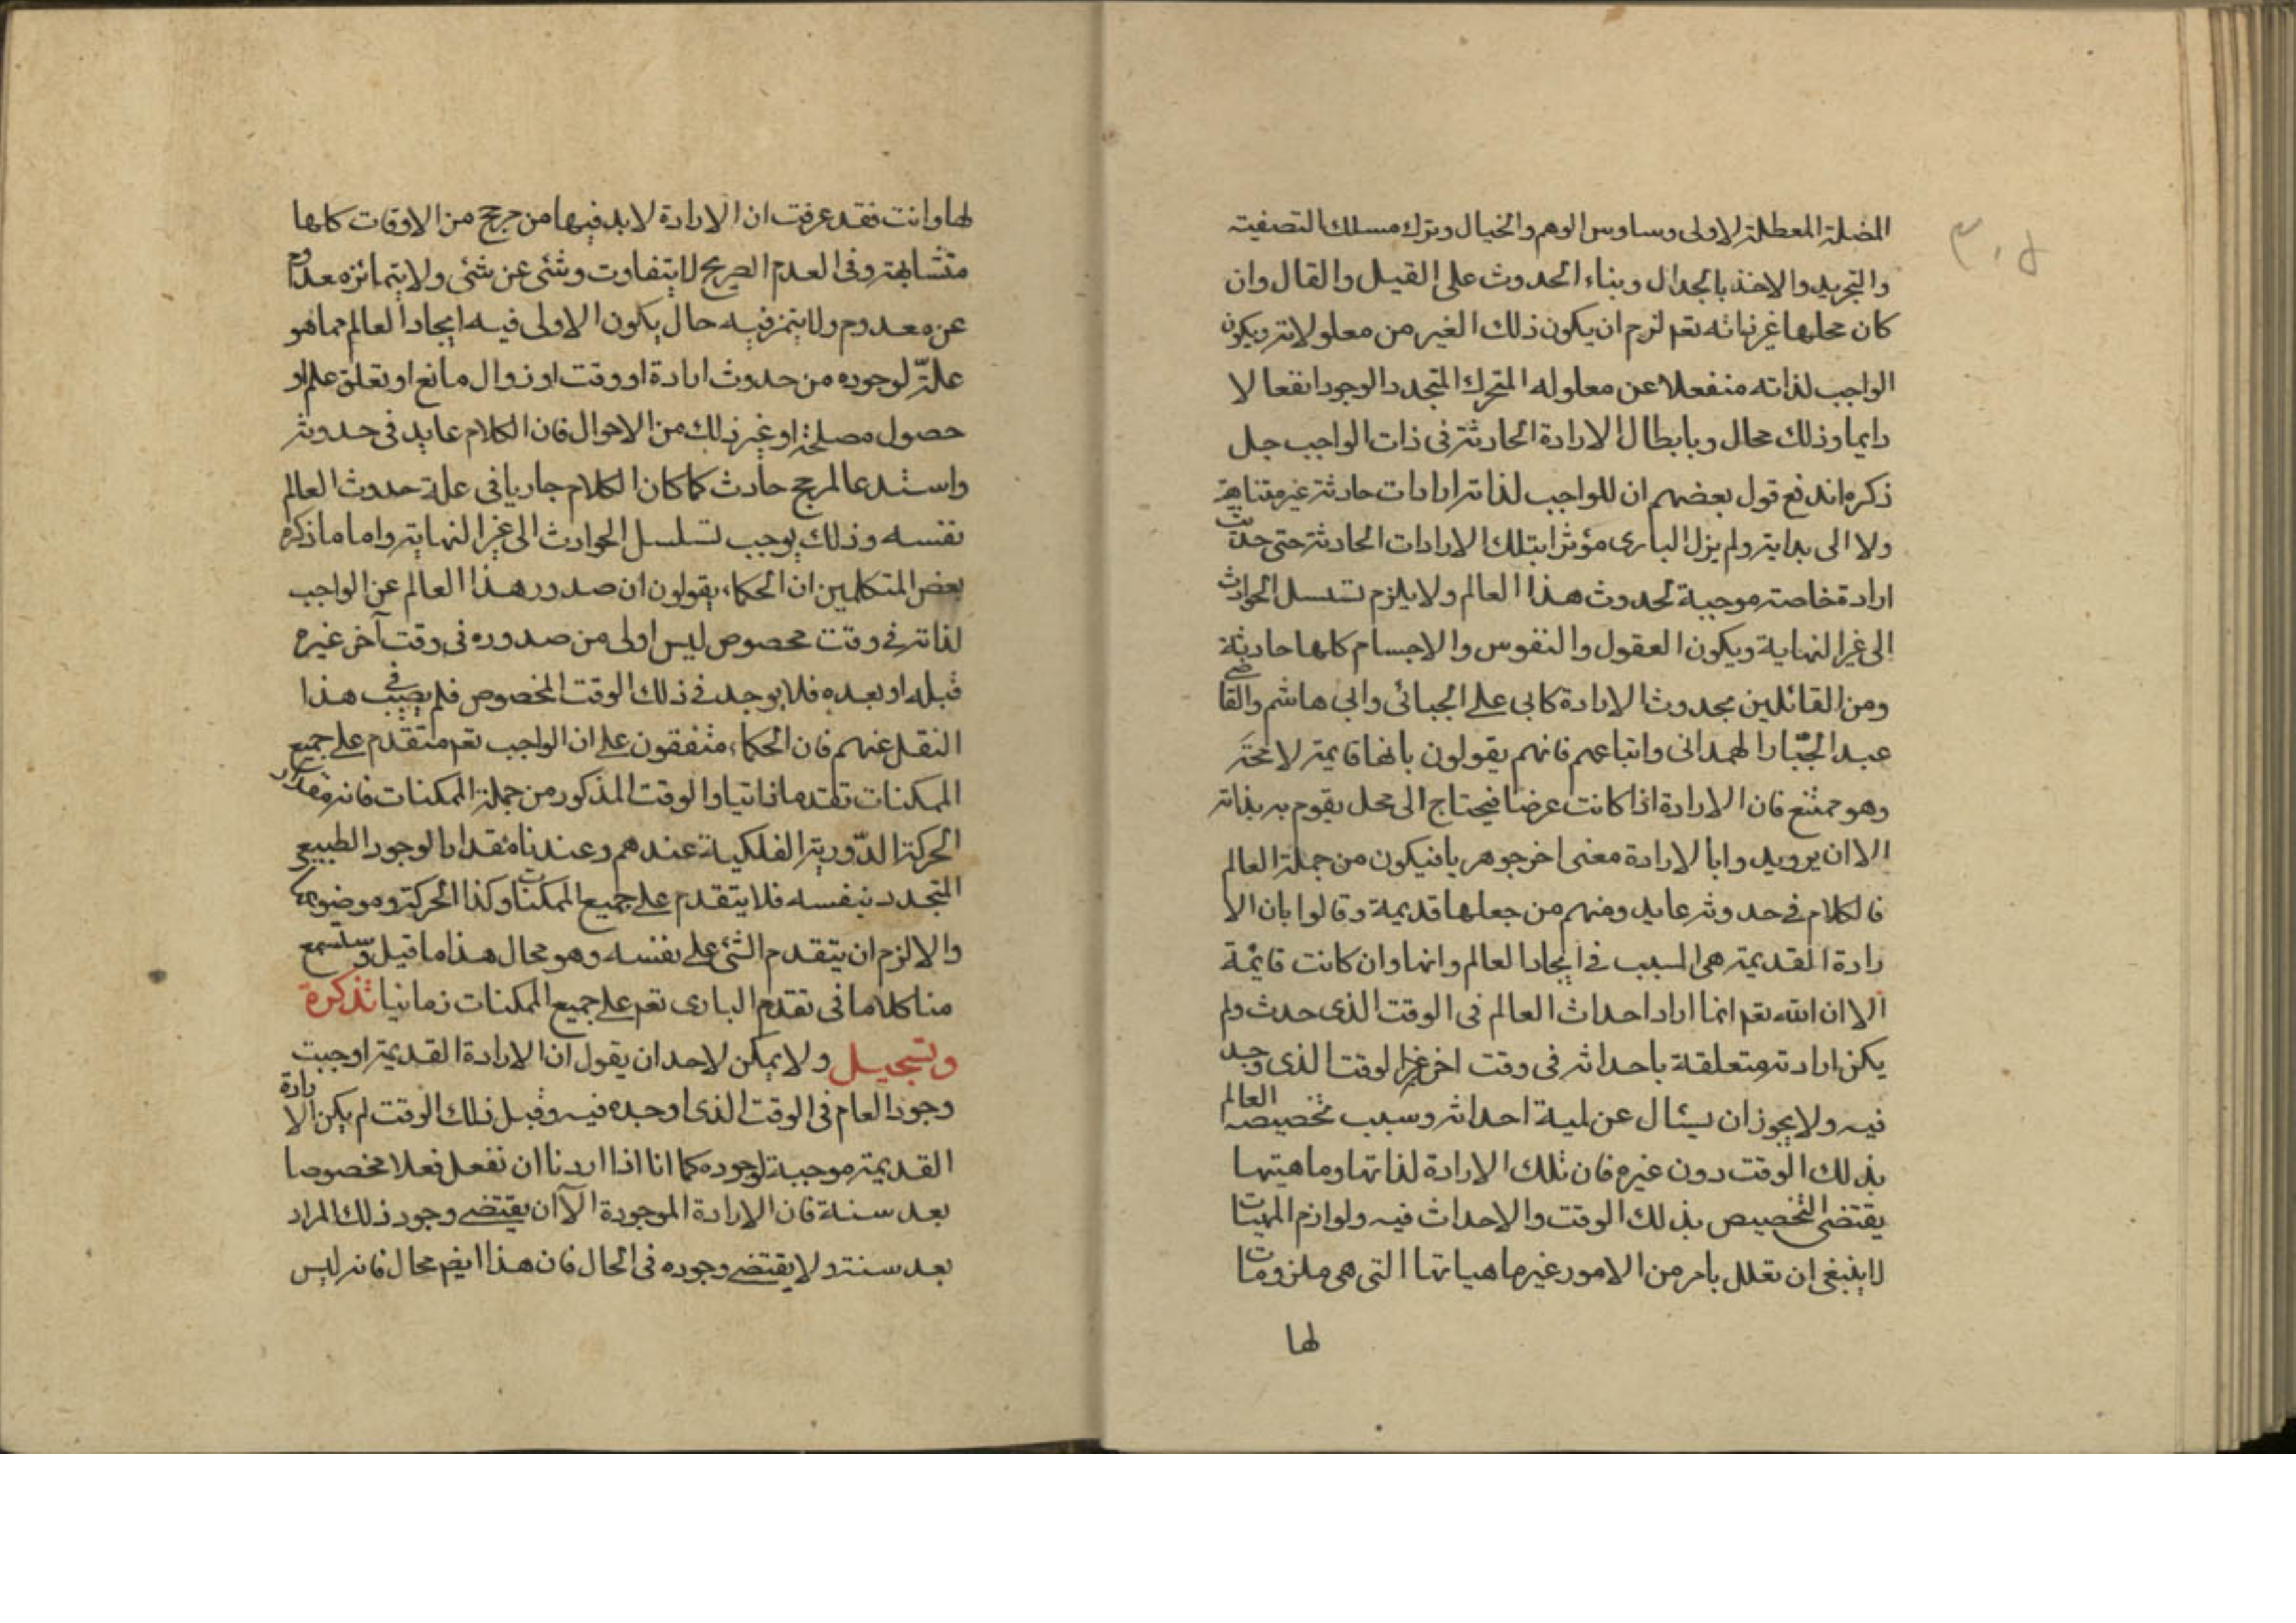 المضلة المعطلة الاولى وساوس الوهم والخيال وترك مسلك التصفية
والتجريد والاخذ بالجدال وبناء الحدوث على القيل والقال وان
كان محلها غير ذاته تعم لزم ان يكون ذلك الغير من معلولاته ويكون
الواجب لذاته منفعلا عن معلوله المتحرك المتجدد الوجود انفعالا
دايما وذلك محال وبابطال الارادة الحادثة فى ذات الواجب جل
ذكره اندفع قول بعضهم ان للواجب لذاته ارادات حادثة غير متناهية
ولا الى بداية ولم يزل البارى مؤثرا بتلك الارادات الحادثة حتى حدثت
ارادة خاصة موجبة لحدوث هذا العالم ولا يلزم تسلسل الحوادث
الى غير النهاية ويكون العقول والنفوس والاجسام كلها حادثة
ومن القائلين بحدوث الارادة كابى على الجبائى وابى هاشم والقاضى
عبد الجبّار الهمدانى واتباعهم فانهم يقولون بانها قايمة لا بمحَل
وهو ممتنع فان الارادة اذا كانت عرضا فيحتاج الى محل يقوم به بذاته
الا ان يريدوا بالارادة معنى اخر جوهريا فيكون من جملة العالم
فالكلام فى حدوثه عايد ومنهم من جعلها قديمة وقالوا بان الا
رادة القديمة هى السبب فى ايجاد العالم وانها وان كانت قايمة
الا ان الله تعم انما اراد احداث العالم فى الوقت الذى حدث ولم
يكن ارادته متعلقة باحداثه فى وقت اخر غير الوقت الذى وجد
فيه ولا يجوز ان يسئال عن لمية احداثه وسبب تخصيصه العالم
بذلك الوقت دون غيره فان تلك الارادة لذاتها وماهيتها
يقتضى التخصيص بذلك الوقت والاحداث فيه ولوازم المهيات
لا ينبغى ان تعلل بامر من الامور غير ماهياتها التى هى ملزومات
لها
لها وانت فقد عرفت ان الارادة لا بد فيها من مرجح من الاوقات كلها
متشابهة وفى العدم الصريح لا يتفاوت وشئى عن شئى ولا يتمائزه معدوم
عن معدوم ولا يتميز فيه حال يكون الاولى فيه ايجاد العالم مما هو
علةّ لوجوده من حدوث ارادة او وقت او زوال مانع او تعلق علم او
حصول مصلحة او غير ذلك من الاحوال فان الكلام عايد فى حدوثه
واستدعا لمرجح حادث كما كان الكلام جاريا فى علة حدوث العالم
نفسه وذلك يوجب تسلسل الحوادث الى غير النهاية واما ما ذكره
بعض المتكلمين ان الحكماء يقولون ان صدور هذا العالم عن الواجب
لذاته فى وقت مخصوص ليس اولى من صدوره فى وقت آخر غيره
قبله او بعده فلا يوجد فى ذلك الوقت المخصوص فلم يصيب فى هذا
النقل عنهم فان الحكماء متفقون على ان الواجب تعم متقدم على جميع
الممكنات تقدما ذاتيا والوقت المذكور من جملة الممكنات فانه مقدار
الحركة الدّورية الفلكية عندهم وعندنا مقدار الوجود الطبيعى
المتجدد بنفسه فلا يتقدم على جميع الممكنات وكذا الحركة وموضوعها
والا لزم ان يتقدم الشئ على نفسه وهو محال هذا ما قيل وستسمع
منا كلاما فى تقدم البارى تعم على جميع الممكنات زمانيا تذكرة
وتسجيل ولا يمكن لاحد ان يقول ان الارادة القديمة اوجبت
وجود العام فى الوقت الذى اوجده فيه وقبل ذلك الوقت لم يكن الارادة
القديمة موجبة لوجوده كما انا اذا اردنا ان نفعل فعلا مخصوصا
بعد سنة فان الارادة الموجودة الآن يقتضى وجود ذلك المراد
بعد سنة ولا يقتضى وجوده فى الحال فان هذا ايضم محال فانه ليس